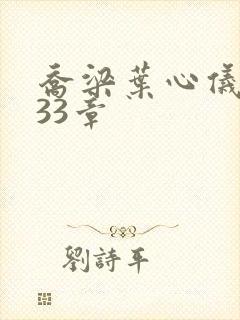 喬梁葉心儀
33章
劉詩平